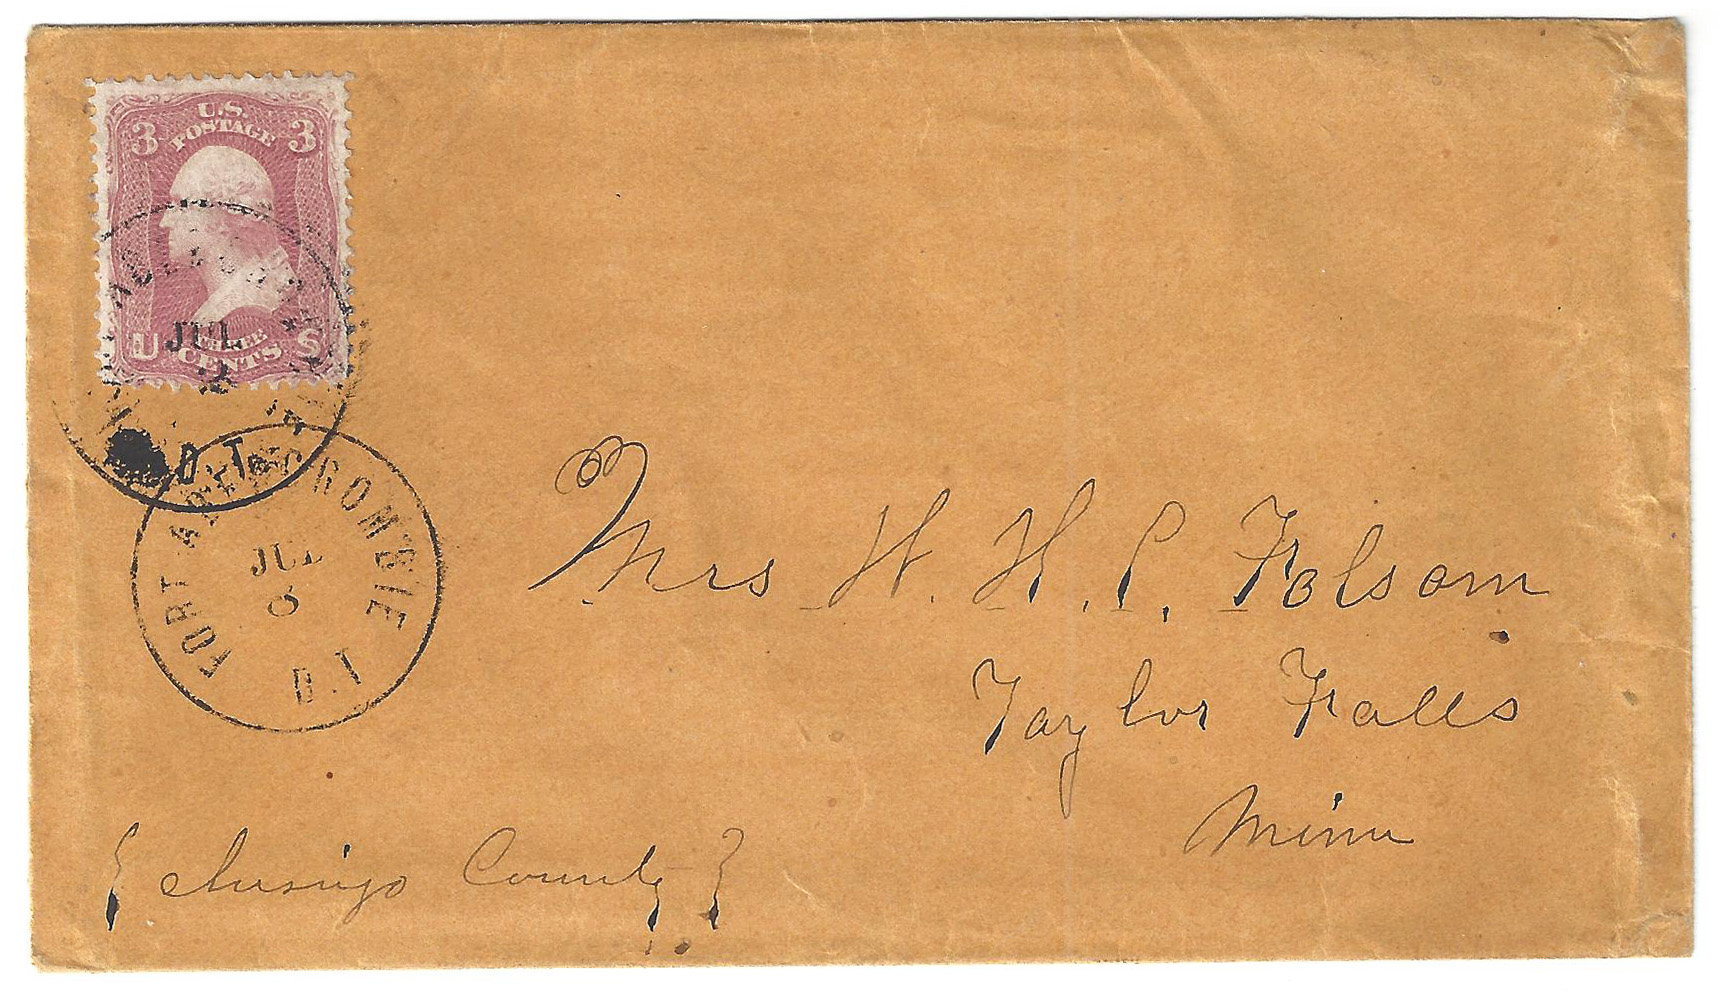 U.S.
POSTAGE
3 3
U S
THREE
CENTS
JUL
2
D.T.
FORT ABERCROMBIE
JUL
6
D.T
Mrs W. H. C. Folsom
Taylor Falls
Minn
{ Chisago County }